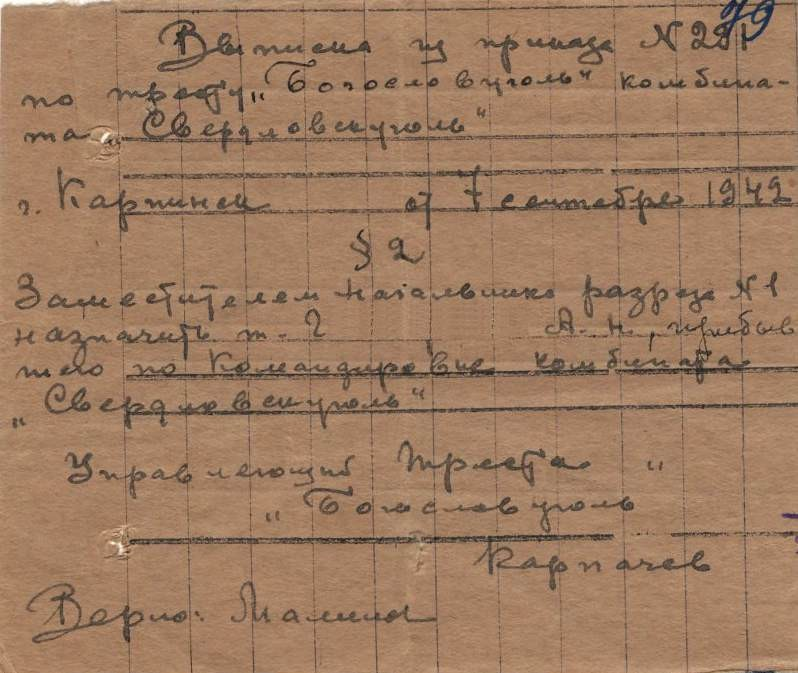 79
Выписка из приказа N 291
по тресту „Богословуголь“ комбина-
та „Свердловскуголь“
г. Карпинск от 7 сентября 1942
§ 2
Заместителем начальника разреза N 1
назначить т. Г А. Н., прибыв
шего по Командировке комбината
„Свердловскуголь“
Управляющий Треста „
„Богословуголь
Карпачев
Верно: